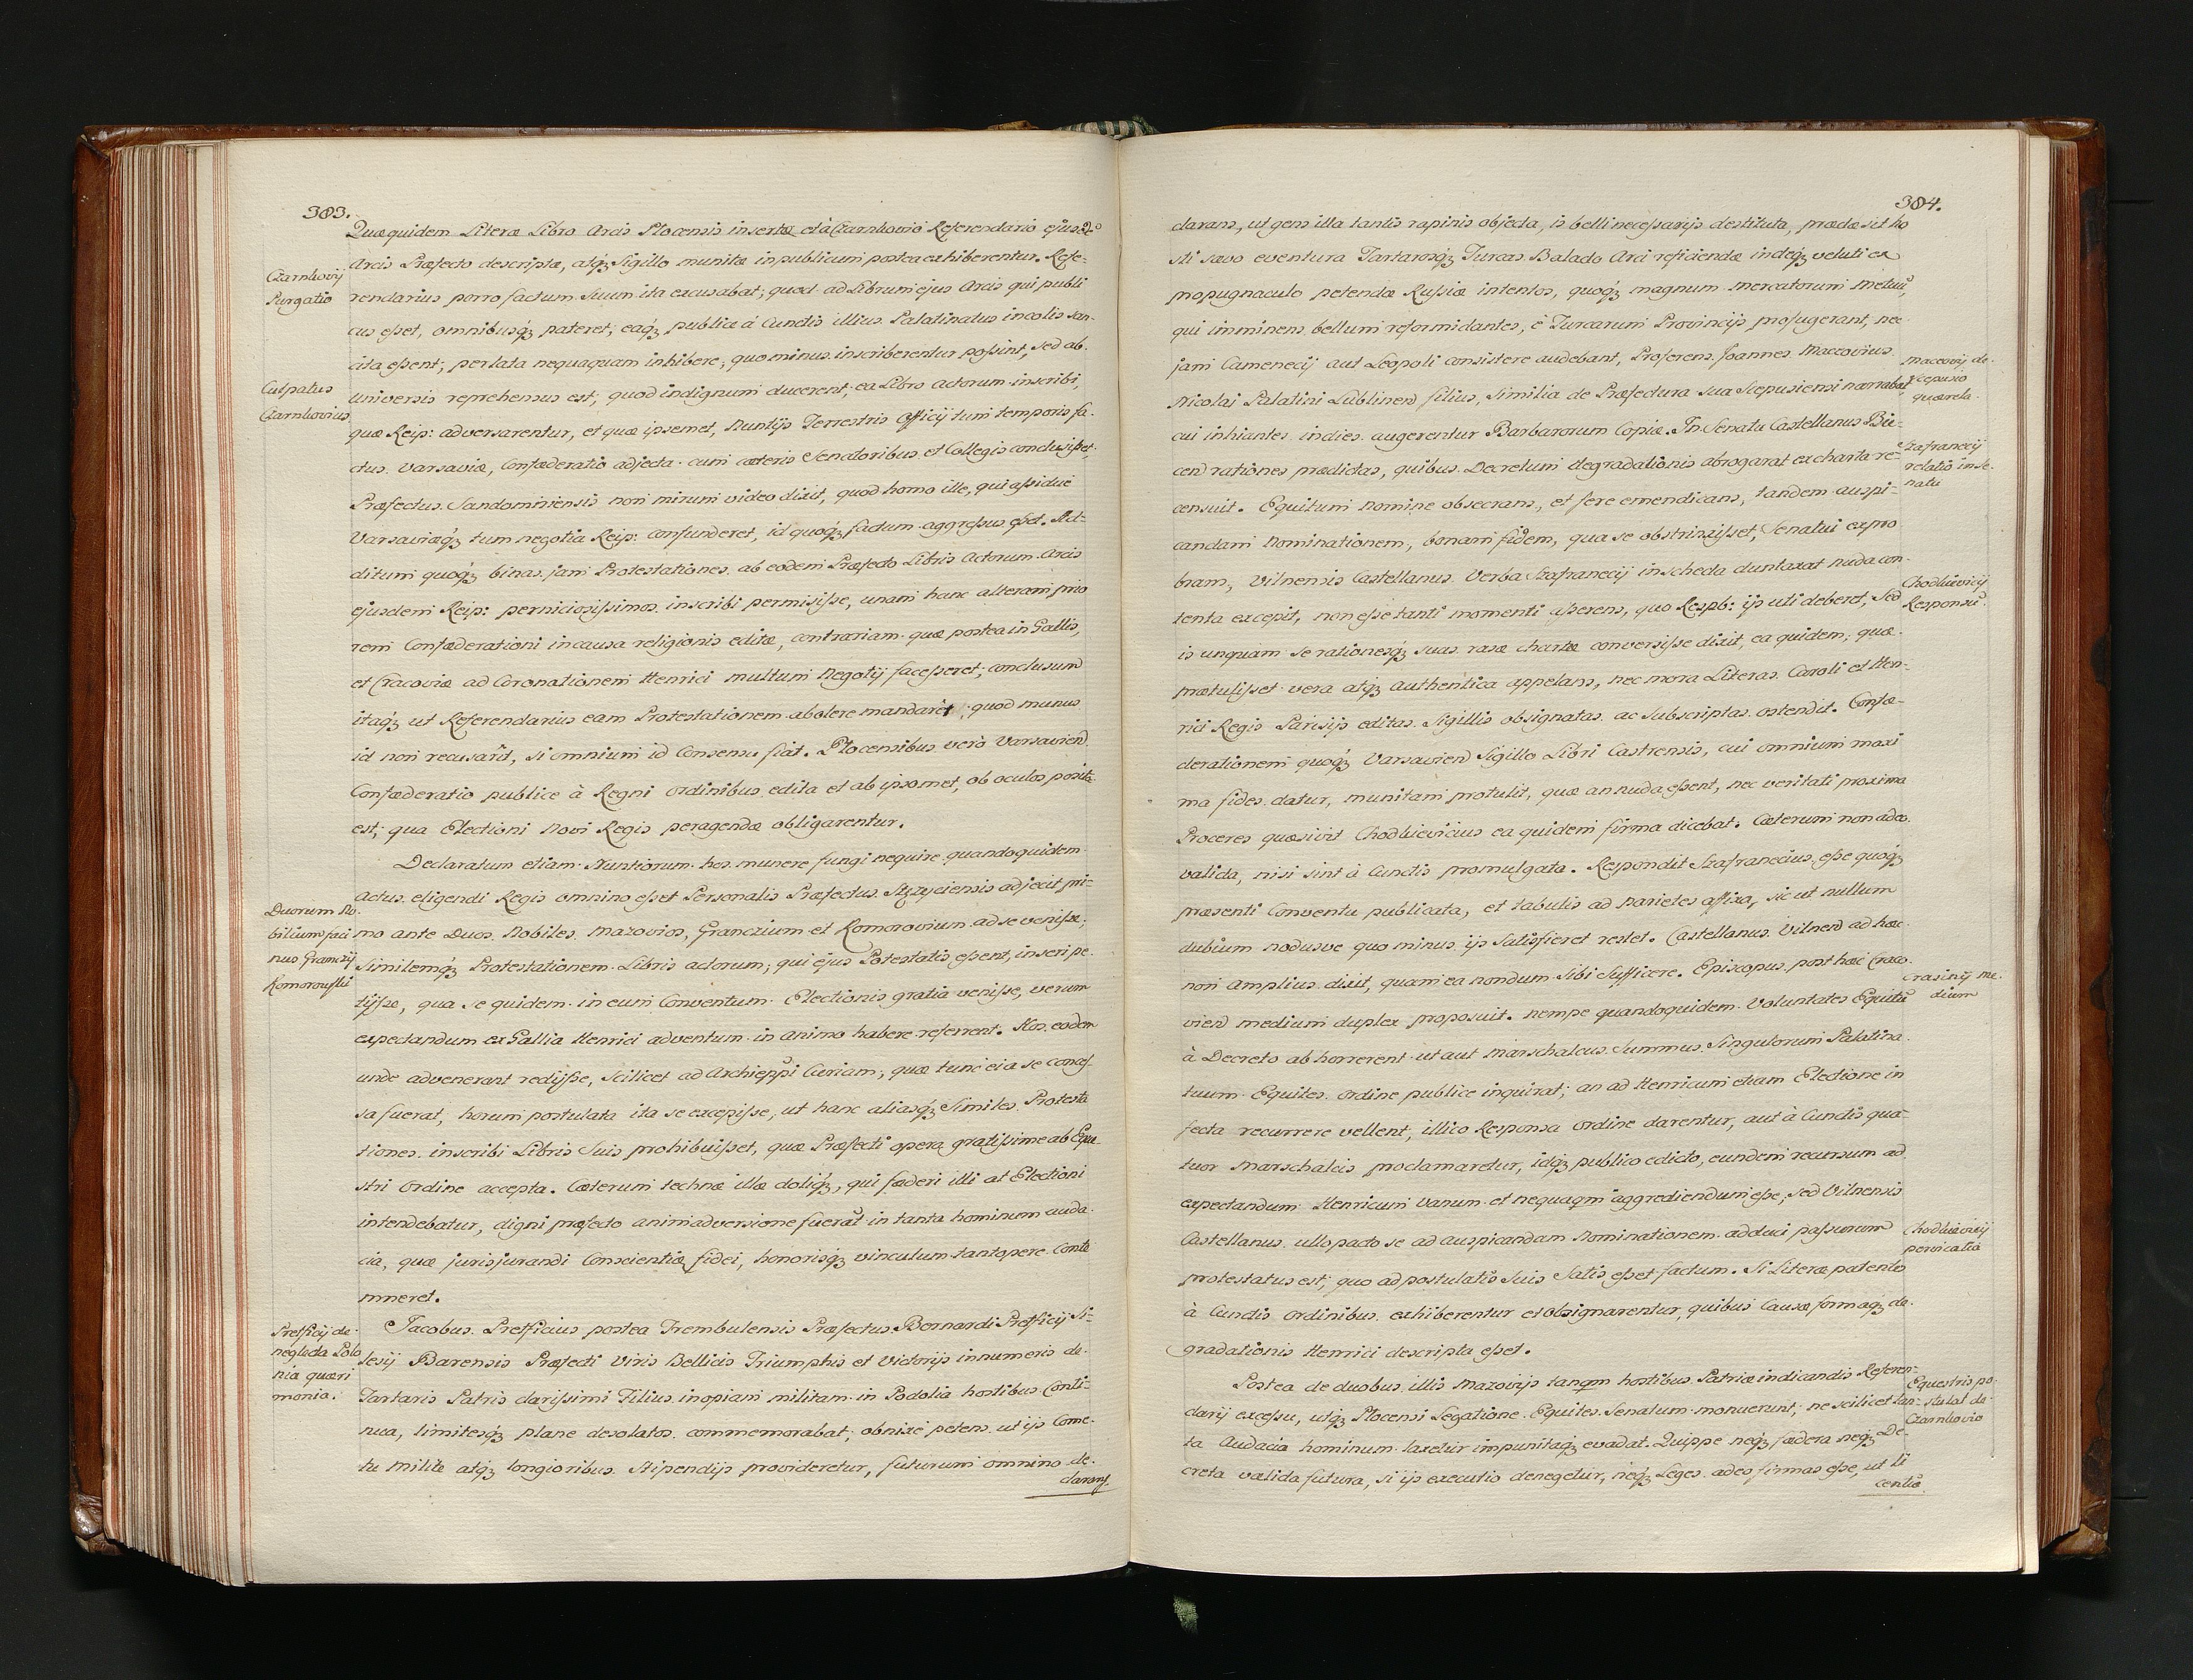 383.
Quæ quidem Literæ Libro Arcis Plocensis insertæ et à Czarnkovio Referendario ejusd:
Arcis Præfecto descriptæ, atq́3 Sigillo munitæ in publicum postea exhiberentur. Refe-
Czarnkovij
Purgatio
rendarius porro factum Suum ita excusabat; quod ad Librum ejus Arcis qui publi
cus eßet, omnibusq́3 pateret; eaq́3 publicæ á Cunctis illius Palatinatus incolis san-
cita eßent; perlata nequaquam inhibere; quominus inscriberentur poßint, Sed ab
Culpatus
Czarnkovius
universis reprehensus est; quod indignum ducerent; ea Libro Actorum inscribi,
quæ Reip: adversarentur, et quæ ipsemet, Nuntijs Terrestris Officij tum temporis fa-
ctus Varsaviæ, Confæderatio adjecta cum cæteris Senatoribus et Collegis conclusißet.
Præfectus Sandomiriensis non mirum video dixit, quod homo ille, qui aßidue
Varsaviæq́3 tum negotia Reip: confunderet, id quoq́3 factum aggreßus eßet. Ad-
ditum quoq́3 binas jam Protestationes ab eodem Præfecto Libris Actorum Arcis
ejusdem Reip: perniciosißimos inscribi permisiße, unam hanc alteram prio
rem Confæderationi in causa religionis editæ, contrariam quæ postea in Gallis,
et Cracoviæ ad Coronationem Henrici multum Negotij faceßeret; conclusum
itaq́3 ut Referendarius eam Protestationem abolere mandaret; quod munus
id non recusarit, si omnium id Consensu fiat. Plocensibus verò Varsaviend
Confæderatio publice à Regni Ordinibus edita et ab ipsomet, ob oculos posita
est; qua Electioni Novi Regis peragendæ obligarentur.
Declaratum etiam Nuntiorum hos munere fungi nequire quandoquidem
Actus eligendi Regis omnino eßet Personalis Præfectus Strzyciensis adjecit pri-
Duorum No-
bilium faci
nus Granczij
Komorowski
mo ante Duos Nobiles Mazovios, Granczium et Komorovium ad se veniße;
Similemq́3 Protestationem Libris actorum; qui ejus Potestatis eßent, inseri pe-
tijße, qua se quidem in eum Conventum Electionis gratia veniße, verum
expectandum ex Gallia Henrici adventum in animo habere referrent. Hos eodem
unde advenerant redijße, Scilicet ad Archieppi Curiam; quæ tunc eia se conces-
sa fuerat, horum postulata ita se excepiße, ut hanc aliasq́3 Similes Protesta
tiones inscribi Libris Suis prohibuißet, quæ Præfecti opera gratißime ab Eque
stri Ordine accepta. Cæterum technæ illæ doliq́3, qui fæderi illi at Electioni
intendebatur, digni profecto animadversione fuerat̃ in tanta hominum auda-
cia, quæ jurisjurandi Conscientiæ fidei, honorisq́3 vinculum tantopere Conte
mneret.
Pretficij de
neglecta Polo
nia quæri
monia.
Jacobus Pretficius postea Trembulensis Præfectus Bernardi Pretficij Si-
lesij Barensis Præfecti Viris Bellicis Triumphis et Victorijs innumeris de
Tartaris Patris clarißimi Filius inopiam militum in Podolia hostibus Conti-
nua, limitesq́3 plane desolatos commemorabat; obnixè petens ut ijs Come-
tu Milite atq́3 longioribus Stipendijs provideretur, futurum omnino de-
clarans.
384.
clarans, ut gens illa tantis rapinis objecta, is belli neceßarijs destituta, prædæ sit ho
sti sævo eventura Tartarosq́3 Turcas Balado Arci reficiendæ indéq́3 veluti ex
propugnaculo petendæ Rußiæ intentos, quoq́3 magnum mercatorum metuũ,
qui imminens bellum reformidantes, è Turcarum Provincijs profugerant, nec
jam Camenecij aut Leopoli consistere audebant, Proferens Joannes Maccovius
Maccovij de
Scepusio
quærela.
Nicolai Palatini Lublinend filius, Similia de Præfectura sua Scepusiensi narrabat
cui inhiantes indies augerentur Barbarorum Copiæ. In Senatu Castellanus Bie-
Szafranecij
relatio in Se-
natu
cend rationes prædictas, quibus Decretum degradationis abrogarat ex charta re-
censuit. Equitum nomine obsecrans, et fere emendicans, tandem auspi-
candam Nominationem, bonam fidem, qua se obstrinxißet, Senatui expro
bram, Vilnensis Castellanus Verba Szafranecij in scheda duntaxat nuda con-
Chodkievicij
Responsũ.
tenta excepit, non eße tanti momenti aßerens, quo Respb: ijs uti deberet, Sed
is unquam se rationesq́3 suas rasæ chartæ conversiße dixit, ea quidem; quæ
prætulißet vera atq́3 Authentica appelans, nec mora Literas Caroli et Hen-
rici Regis Parisijs editas Sigillis obsignatas ac Subscriptas ostendit. Confæ-
derationem quoq́3 Varsaviend Sigillo Libri Castrensis, cui omnium maxi
ma fides datur, munitam protulit, quæ an nuda eßent, nec veritati proxima
Proceres quæsivit Chodkievicius ea quidem firma dicebat. Cæterum non adeo
valida, nisi sint à Cunctis promulgata. Respondit Szafranecius eße quoq́3
præsenti Conventu publicata, et tabulis ad parietes affixa, sic ut nullum
dubium nodusve quo minus ijs Satisfieret restet. Castellanus Vilnend ad hæc
non Amplius dixit, quam ea nondum Sibi Sufficere. Episcopus post hæc Craco
Crasinij me-
dium
viend medium duplex proposuit. nempe quandoquidem Voluntates Equitũ
à Decreto abhorrerent ut aut Marschalcus Summus Singulorum Palatina-
tuum Equites Ordine publice inquirat; an ad Henricum etiam Electione in
fecta recurrere vellent, illico Responsa ordine darentur, aut à Cunctis qua-
tuor Marschalcis proclamaretur, idq́3 publico edicto, eundem recursum ad
expectandum Henricum Vanum et nequaqm aggrediendum eße; sed Vilnensis
Chodkievicij
pervicatia
Castellanus ullo pacto se ad auspicandam Nominationem adduci paßurum
protestatus est; quo ad postulatis Suis Satis eßet factum. Si Literæ patentes
à Cunctis Ordinibus exhiberentur et obsignarentur, quibus Causæ formaq́3 de-
gradationis Henrici descripta eßet.
Equestris po-
stulat de
Czarnkovio
Postea de duobus illis Mazovijs tanqm hostibus Patriæ indicandis Referen-
darij exceßu, utq́3 Plocensi Legatione Equites Senatum monuerunt; ne scilicet tan-
ta Audacia hominum laxetur impunitaq́3 evadat. Quippe neq́3 fædera neq́3 De-
creta valida futura, si ijs executio denegetur, neq́3 Leges adeo firmas eße, ut li
centiæ